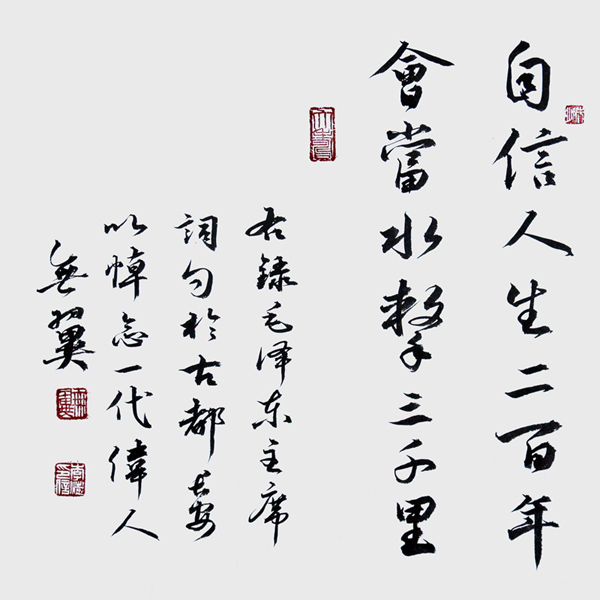 自信人生二百年
會當水擊三千里
右録毛泽东主席
詞句於古都長安
以悼念一代偉人
無翼